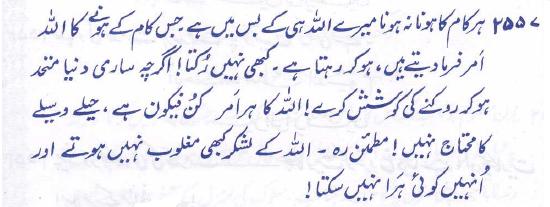 ۲۵۵۷ ہر کام کا ہونا نہ ہونا میرے اللہ ہی کے بس میں ہے جس کام کے ہونے کا اللہ
اَمر فرما دیتے ہیں، ہو کر رہتا ہے۔ کبھی نہیں رُکتا! اگرچہ ساری دنیا متحد
ہو کر روکنے کی کوشش کرے! اللہ کا ہر اَمر کُن فیکون ہے، حیلے وسیلے
کا محتاج نہیں! مطمئن رہ۔ اللہ کے لشکر کبھی مغلوب نہیں ہوتے اور
اُنہیں کوئی ہَرا نہیں سکتا!